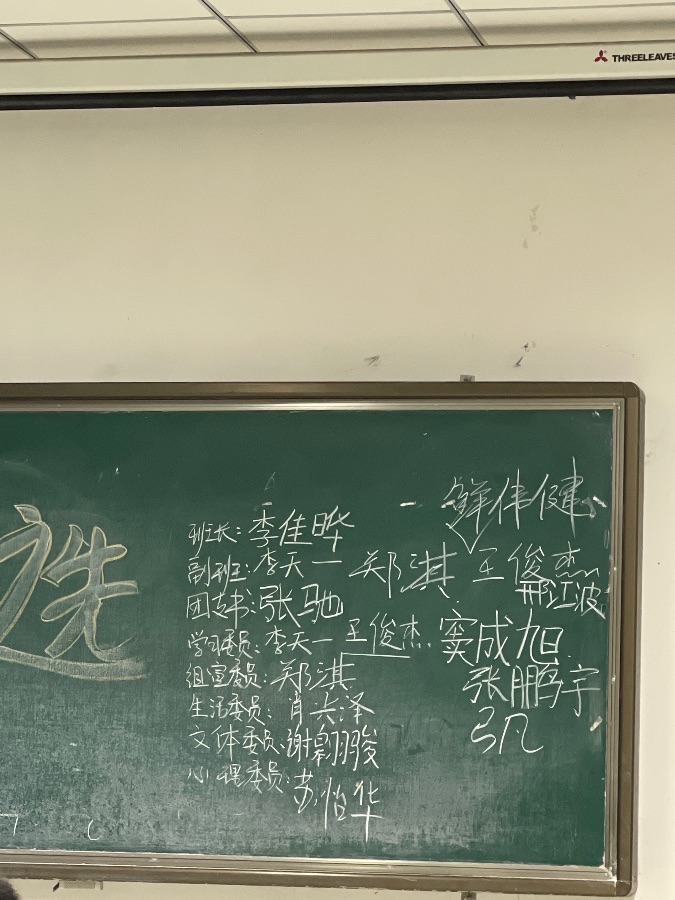 THREELEAVES
选
鲜伟健
班长: 李佳晔
副班: 李天一 郑淇 王俊杰
邢江波
团支书: 张驰
学习委员: 李天一 王俊杰 窦成旭
组宣委员: 郑淇 张鹏宇
生活委员: 肖兴泽
文体委员: 谢翱骏
心理委员: 苏怡华